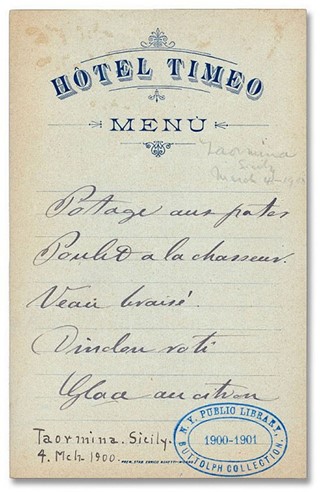 HÔTEL TIMEO
MENÙ
Taormina
Sicily
March 4 - 1900
Potage aux pates
Poulet a la chasseur.
Veau braisé.
Dindon roti
Glace au citron
Taormina. Sicily.
4. Mch. 1900.
N. Y. PUBLIC LIBRARY,
1900-1901
BUTTOLPH COLLECTION.